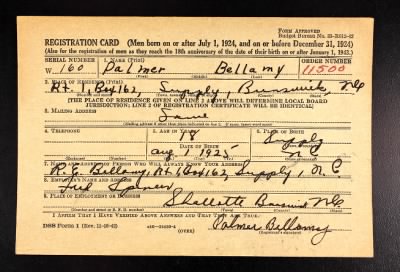 FORM APPROVED
REGISTRATION CARD (Men born on or after July 1, 1924, and on or before December 31, 1924)
(Also for the registration of men as they reach the 18th anniversary of the date of their birth on or after January 1, 1943.)
SERIAL NUMBER 1. NAME (Print) ORDER NUMBER
W 160 Palmer Bellamy 11500
(First) (Middle) (Last)
2. PLACE OF RESIDENCE (Print)
Rt. 1 Box 162, Supply, Brunswick, N.C.
[THE PLACE OF RESIDENCE GIVEN ON LINE 2 ABOVE WILL DETERMINE LOCAL BOARD
JURISDICTION; LINE 2 OF REGISTRATION CERTIFICATE WILL BE IDENTICAL]
3. MAILING ADDRESS
Same
4. TELEPHONE 5. AGE IN YEARS 6. PLACE OF BIRTH
18 Supply
DATE OF BIRTH
Aug 1 1925 N.C.
7. NAME AND ADDRESS OF PERSON WHO WILL ALWAYS KNOW YOUR ADDRESS
R. E. Bellamy, Rt. 1 Box 162 Supply, N. C.
8. EMPLOYER'S NAME AND ADDRESS
Fred
9. PLACE OF EMPLOYMENT OR BUSINESS
Shallotte N.C.
I AFFIRM THAT I HAVE VERIFIED ABOVE ANSWERS AND THAT THEY ARE TRUE.
DSS Form 1 (OVER) Palmer Bellamy